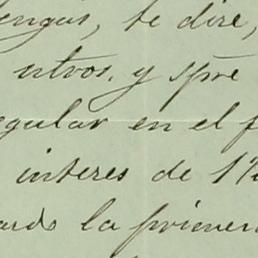 tengas, te dire,
ntros, y spre
egular en el f
interes de 1%
ardo la primera